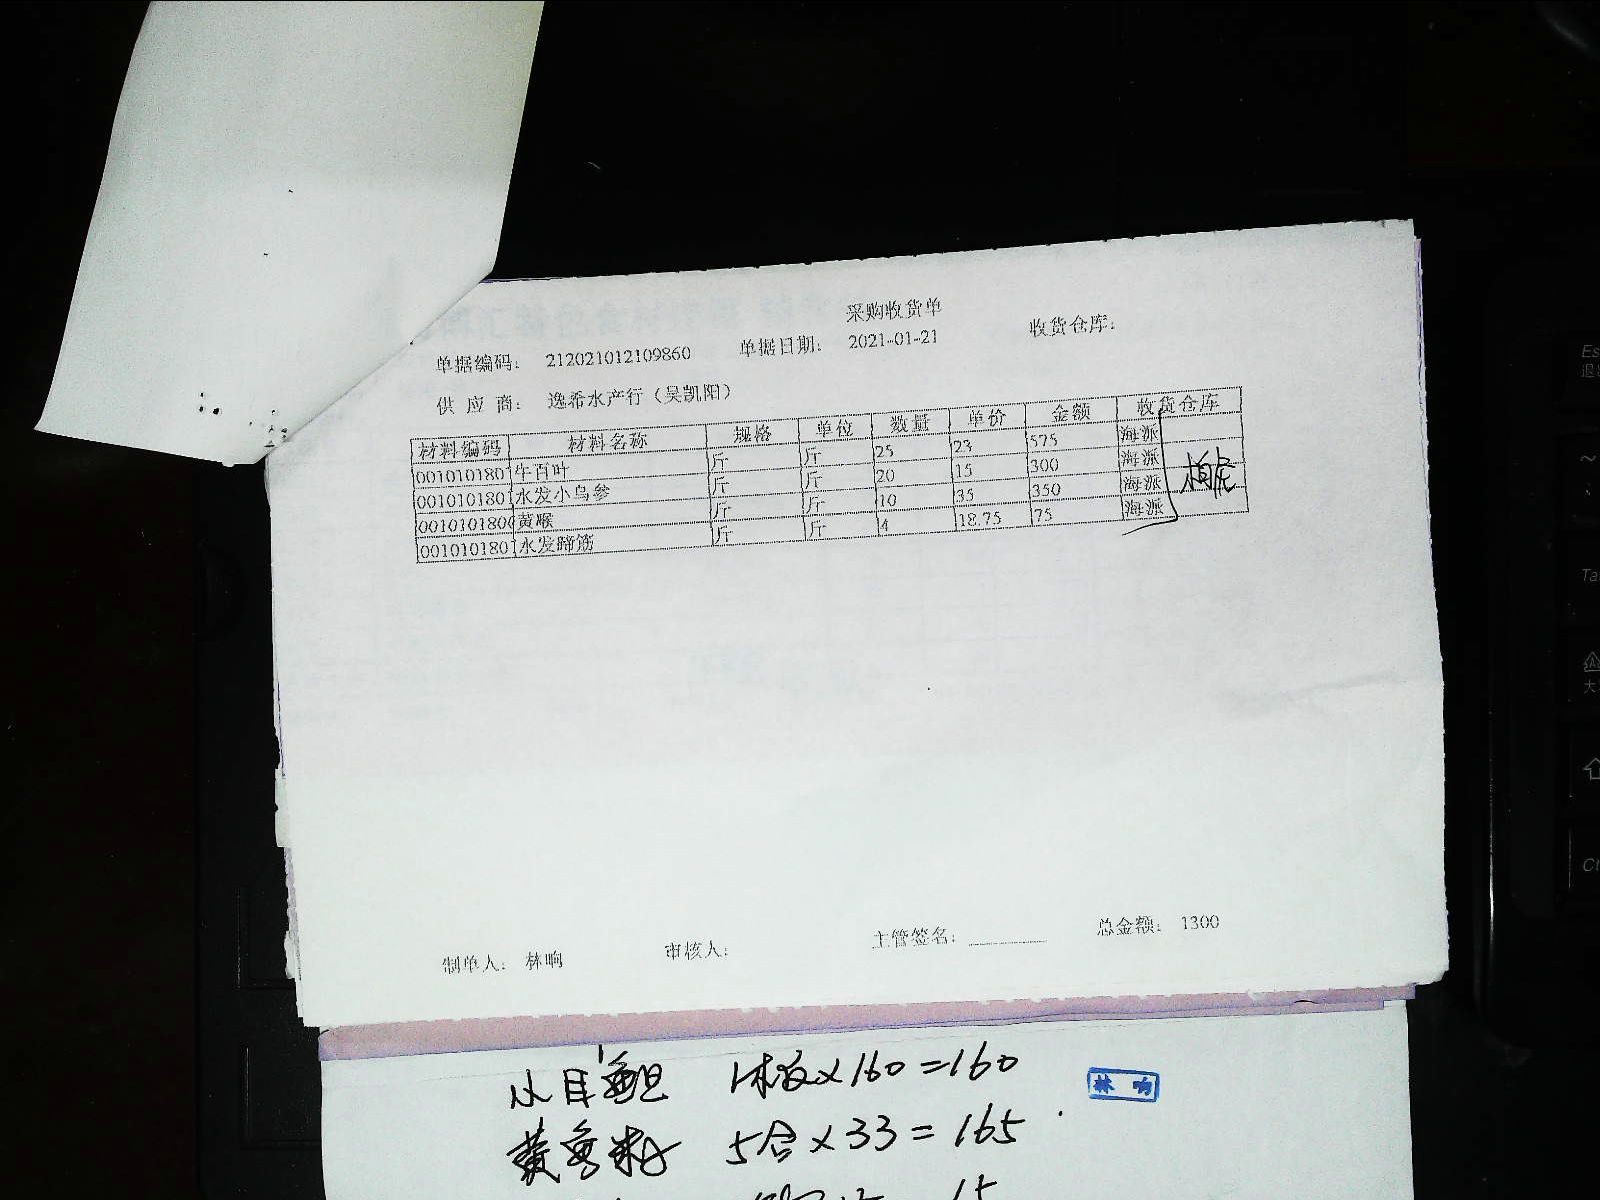 采购收货单
单据编码: 212021012109860 单据日期: 2021-01-21 收货仓库:
供应商: 逸希水产行(吴凯阳)
材料编码 材料名称 规格 单位 数量 单价 金额 收货仓库
001010180 牛百叶 斤 斤 25 23 575 海派
001010180 水发小乌参 斤 斤 20 15 300 海派
0010101800 黄喉 斤 斤 10 35 350 海派
001010180 水发蹄筋 斤 斤 4 18.75 75 海派
制单人: 林响 审核人: 主管签名: 总金额: 1300
x160=160
林响
黄鱼 5合x33=165
15
Es
Ta